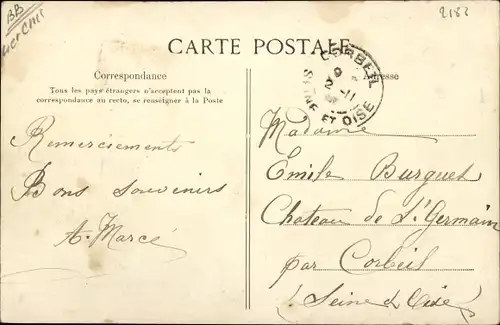 BB
2182
CARTE POSTALE
CORBEIL
9
2 - 11
SEINE ET OISE
Correspondance
Tous les pays étrangers n'acceptent pas la
correspondance au recto, se renseigner à la Poste
Remerciements
Bons souvenirs
A. Marcé
Adresse
Madame
Emile Burguet
Chateau de St Germain
par Corbeil
(Seine & Oise)